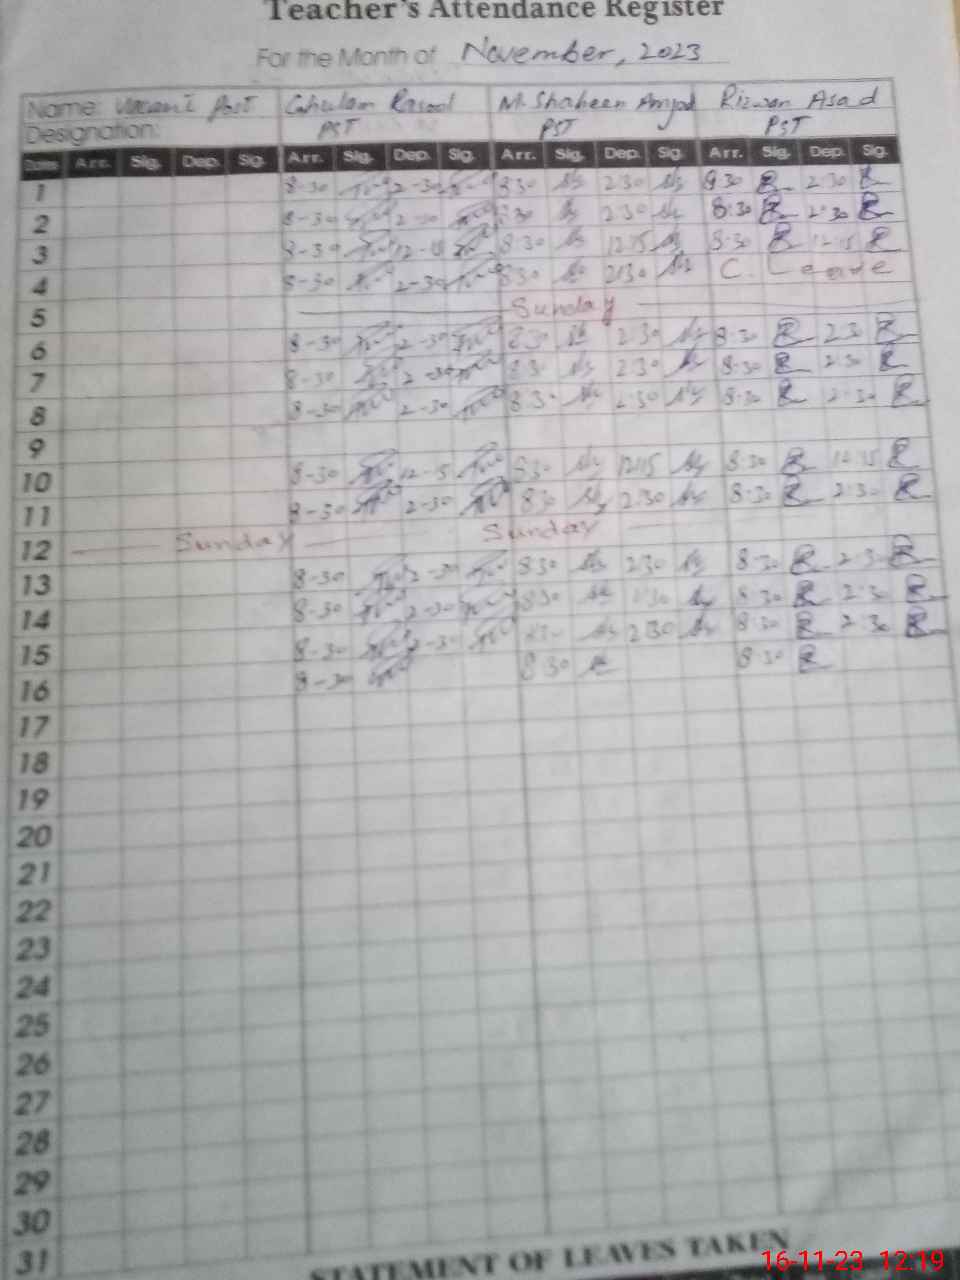 Teacher's Attendance Register
For the Month of November, 2023
Name: Vacant Post Ghulam Rasool M. Shaheen Amjad Rizwan Asad
Designation: PST PST PST
Dates Arr. Sig. Dep. Sig. Arr. Sig. Dep. Sig. Arr. Sig. Dep. Sig. Arr. Sig. Dep. Sig.
1 8-30 2-30 8 30 2 30 8 30 2-30
2 8-30 2-30 8 30 2 30 8:30 2:30
3 8-30 12-15 8 30 12 15 8:30 12:15
4 8-30 2-30 8 30 2 30 C. Leave
5 Sunday
6 8-30 2-30 8 30 2 30 8:30 2:30
7 8-30 2-30 8 30 2 30 8:30 2:30
8 8-30 2-30 8 30 2 30 8:30 2:30
9
10 8-30 12-15 8 30 12 15 8:30 12:15
11 8-30 2-30 8 30 2 30 8:30 2:30
12 Sunday Sunday
13 8-30 2-30 8 30 2 30 8:30 2:30
14 8-30 2-30 8 30 2 30 8:30 2:30
15 8-30 2-30 8 30 2 30 8:30 2:30
16 8-30 8 30 8:30
17
18
19
20
21
22
23
24
25
26
27
28
29
30
31
STATEMENT OF LEAVES TAKEN
16-11-23 12:19